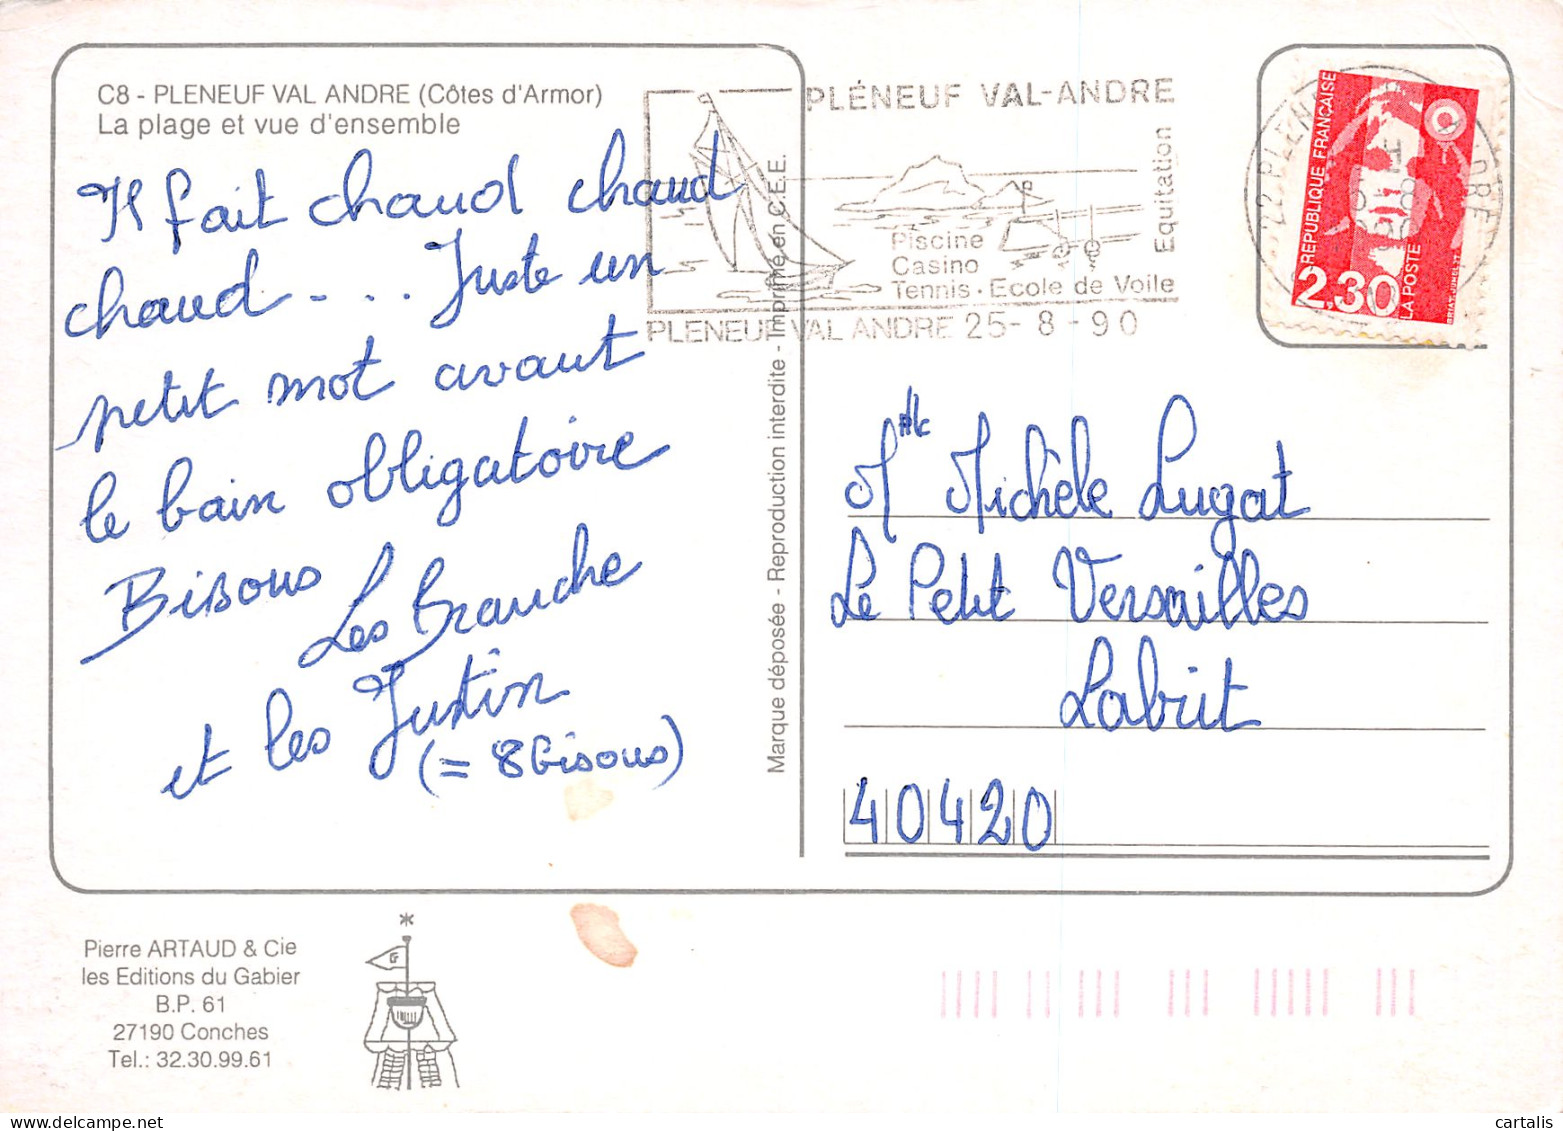 C8 - PLENEUF VAL ANDRE (Côtes d'Armor)
La plage et vue d'ensemble
Il fait chaud chaud
chaud - . . . Juste un
petit mot avant
le bain obligatoire
Bisous
Les Branche
et les Justin
(= 8 bisous)
Marque déposée - Reproduction interdite - Imprimé en C.E.E.
PLÉNEUF VAL-ANDRE
Piscine
Casino
Tennis - Ecole de Voile
Equitation
PLENEUF VAL ANDRE 25-8-90
REPUBLIQUE FRANÇAISE
2,30
LA POSTE
Mlle Michèle Lugat
Le Petit Versailles
Labrit
40420
Pierre ARTAUD & Cie
les Editions du Gabier
B.P. 61
27190 Conches
Tel.: 32.30.99.61
cartalis